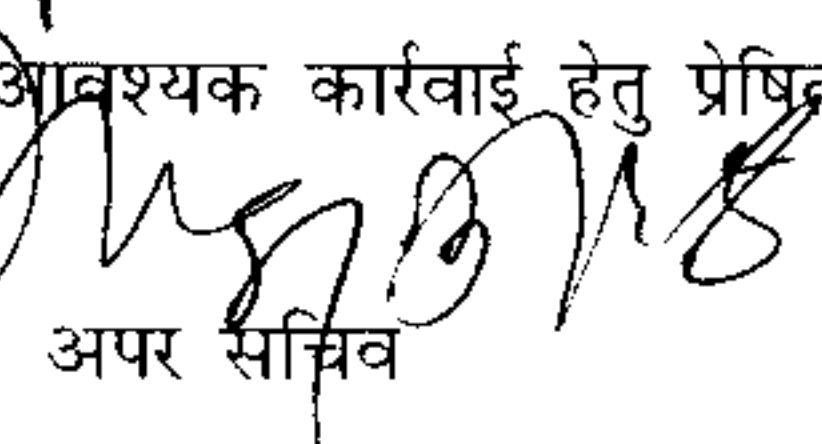 आवश्यक कार्रवाई हेतु प्रेषित
अपर सचिव